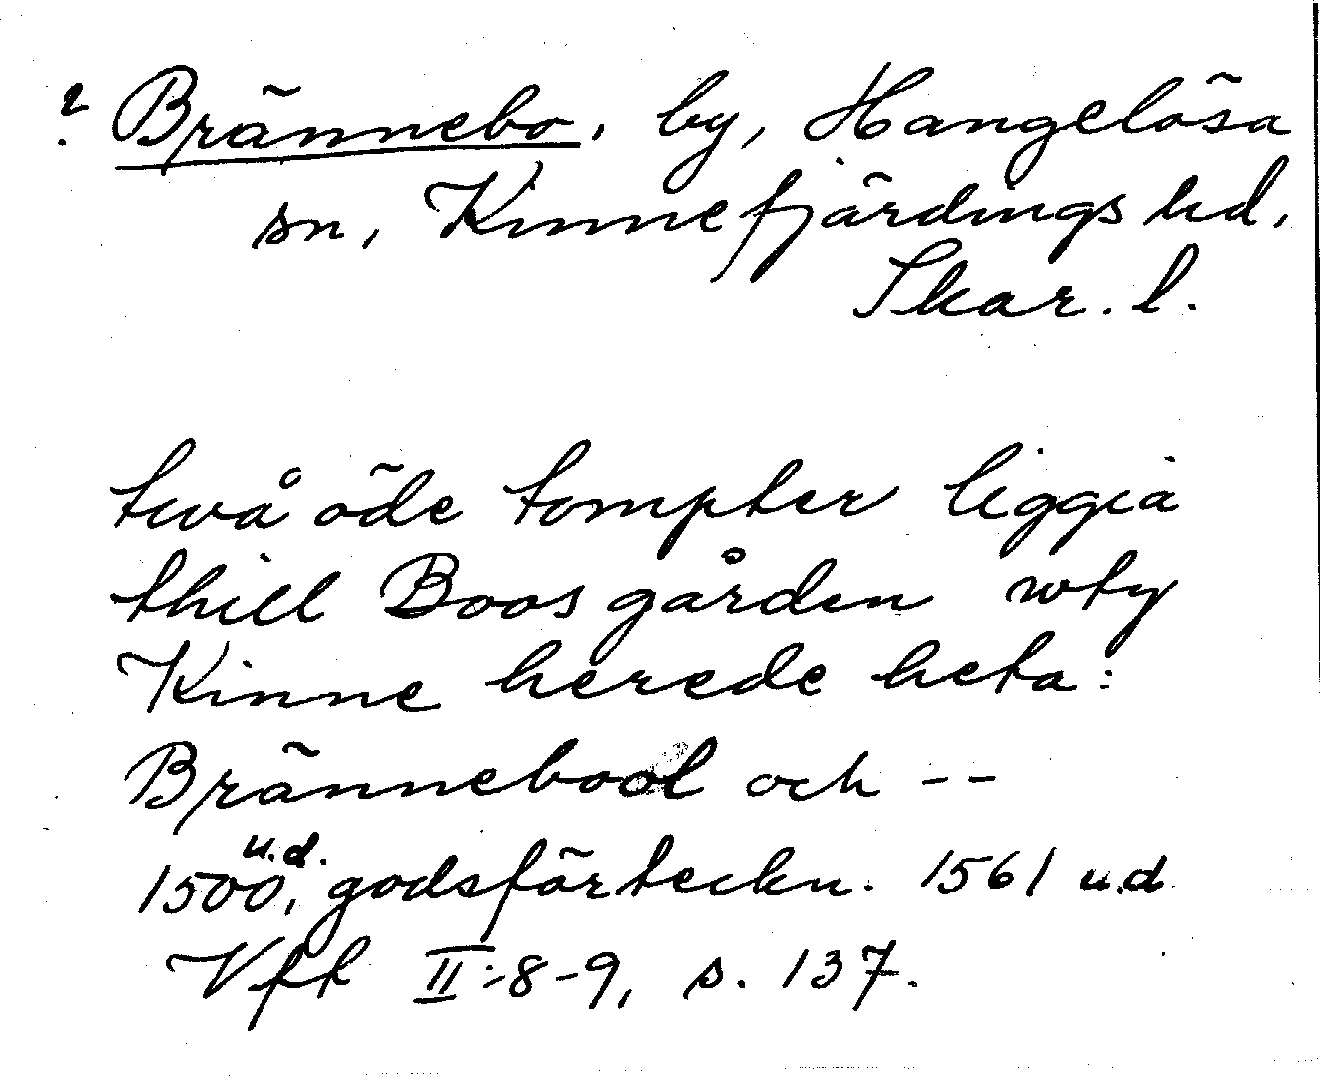 ? Brännebo, by, Hangelösa
sn, Kinnefjärdings hd,
Skar. l.
twå öde tompter liggia
thill Boosgården wty
Kinne herede heta:
Brännebool och --
u.d.
1500, godsförteckn. 1561 u.d
Vft II:8-9, s. 137.